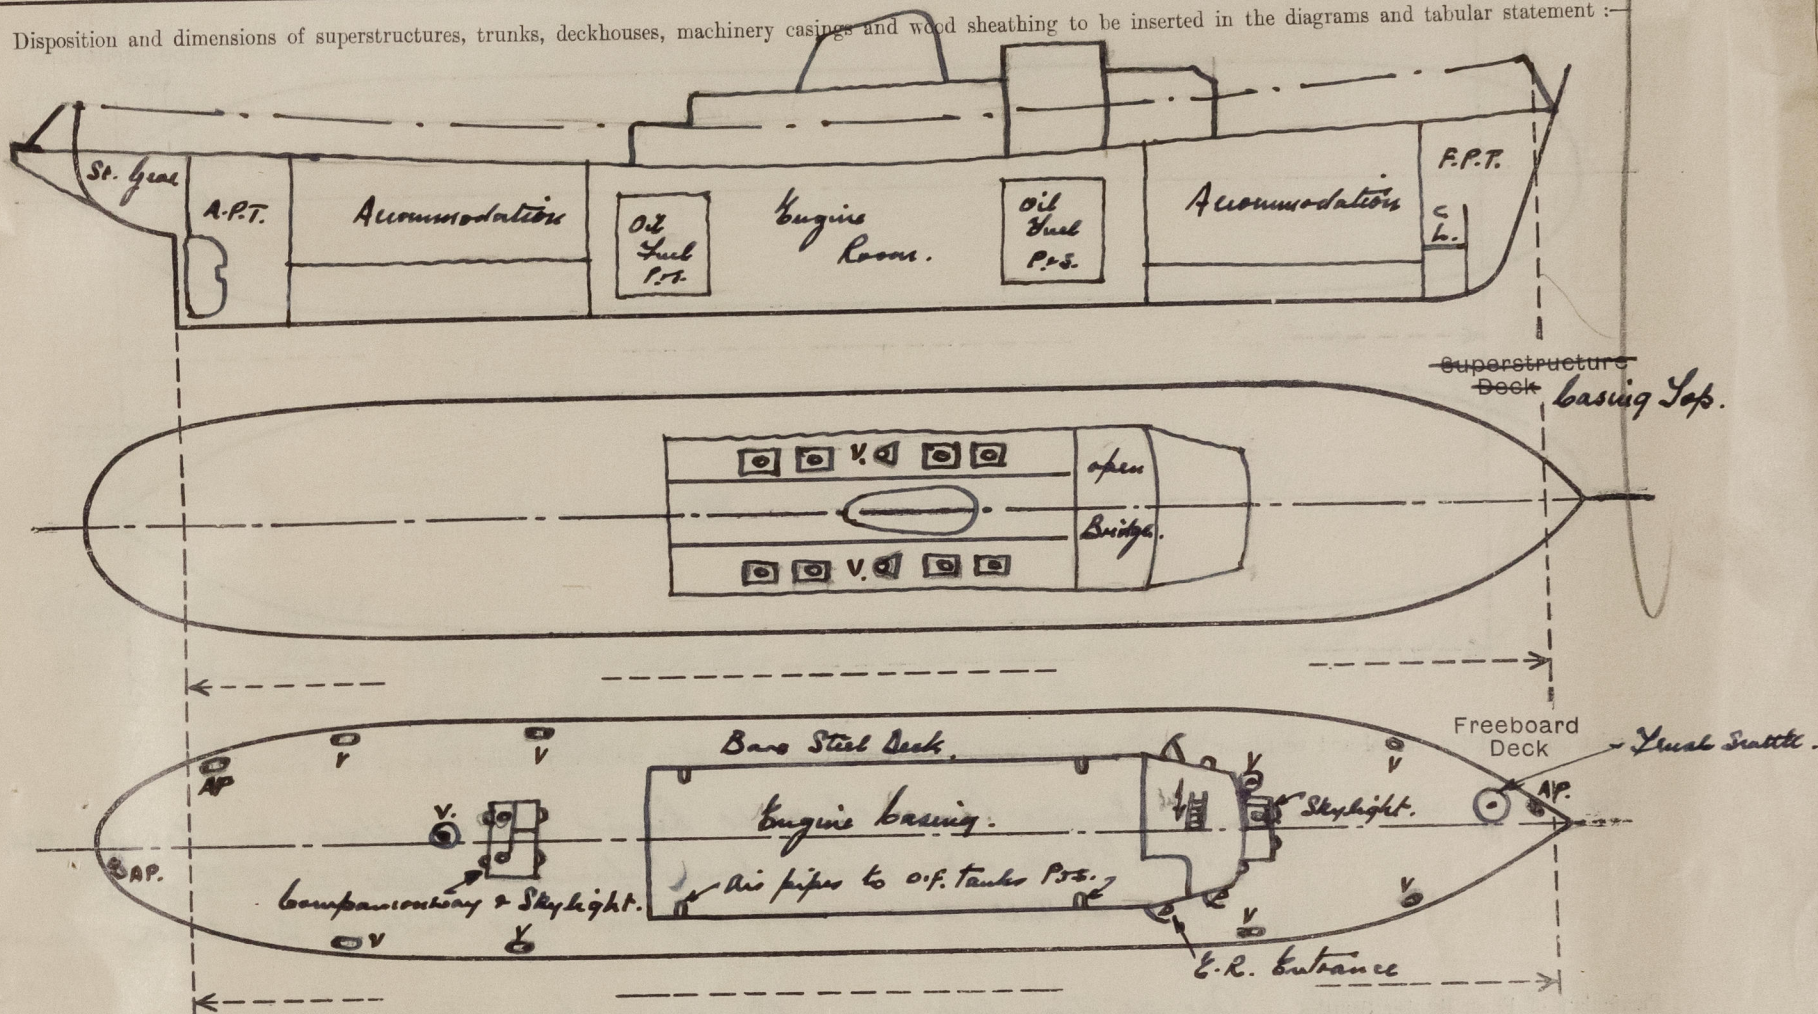 Disposition and dimensions of superstructures, trunks, deckhouses, machinery casings and wood sheathing to be inserted in the diagrams and tabular statement :—
St. Gear
A.P.T.
Accommodation
Oil
Fuel
P.S.
Engine
Room.
Oil
Fuel
P.&S.
Accommodation
F.P.T.
C
L.
Superstructure
Deck
Casing Top.
V.
open
Bridge.
V.
Freeboard
Deck
Flush Scuttle.
Bare Steel Deck.
V
V
AP
V
V
AP.
V.
Engine Casing.
Skylight.
AP.
Air pipes to O.F. Tanks P&S.
Companionway & Skylight.
V
V
V
V
E.R. Entrance